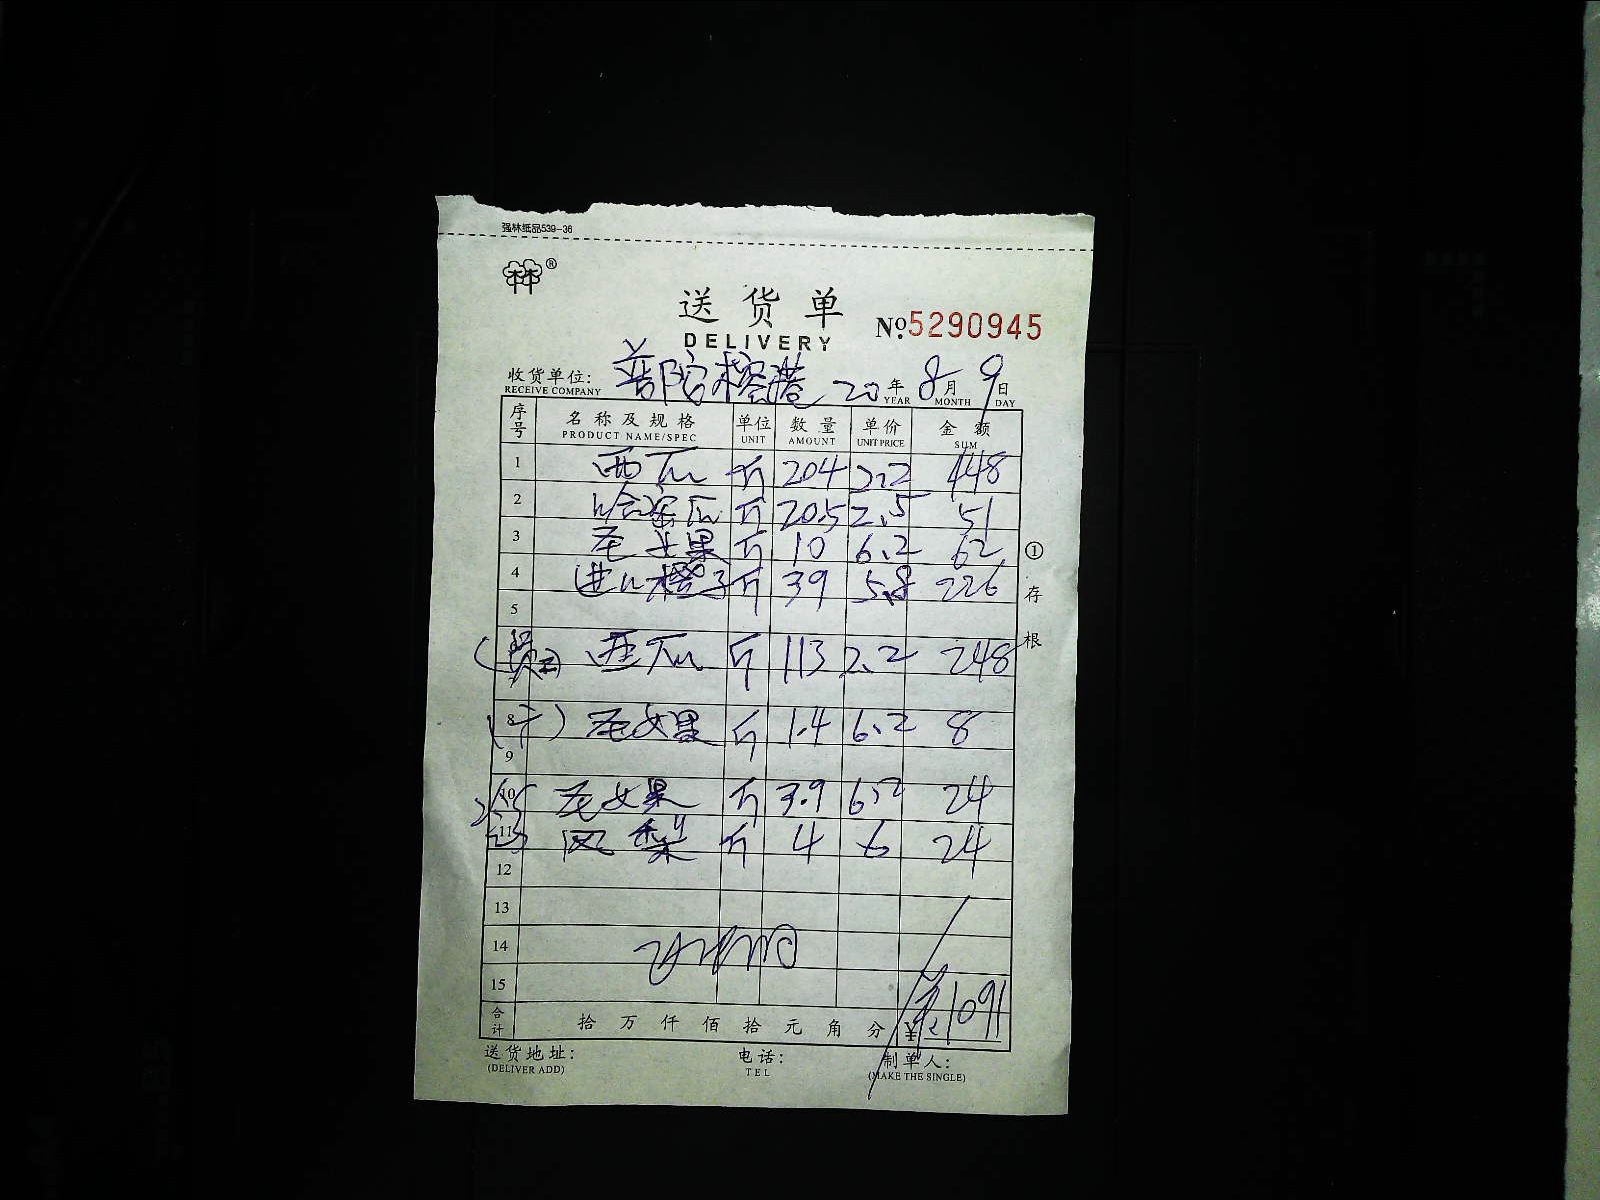 强林纸品539-36
®
送货单
DELIVERY
No.5290945
收货单位: 普陀榕港 20年8月9日
RECEIVE COMPANY YEAR MONTH DAY
序号 名称及规格 单位 数量 单价 金额
PRODUCT NAME/SPEC UNIT AMOUNT UNIT PRICE SUM
1 西瓜 斤 204 2.2 448
2 哈密瓜 斤 20.5 2.5 51
3 圣女果 斤 10 6.2 62
4 进口橙子 斤 39 5.8 226
5
(员工) 西瓜 斤 113 2.2 248
7
8 圣女果 斤 1.4 6.2 8
9
10 圣女果 斤 3.9 6.2 24
11 凤梨 斤 4 6 24
12
13
14
15
合计 拾万仟佰拾元角分 ¥: 1091
①存根
送货地址: 电话: 制单人:
(DELIVER ADD) TEL (MAKE THE SINGLE)